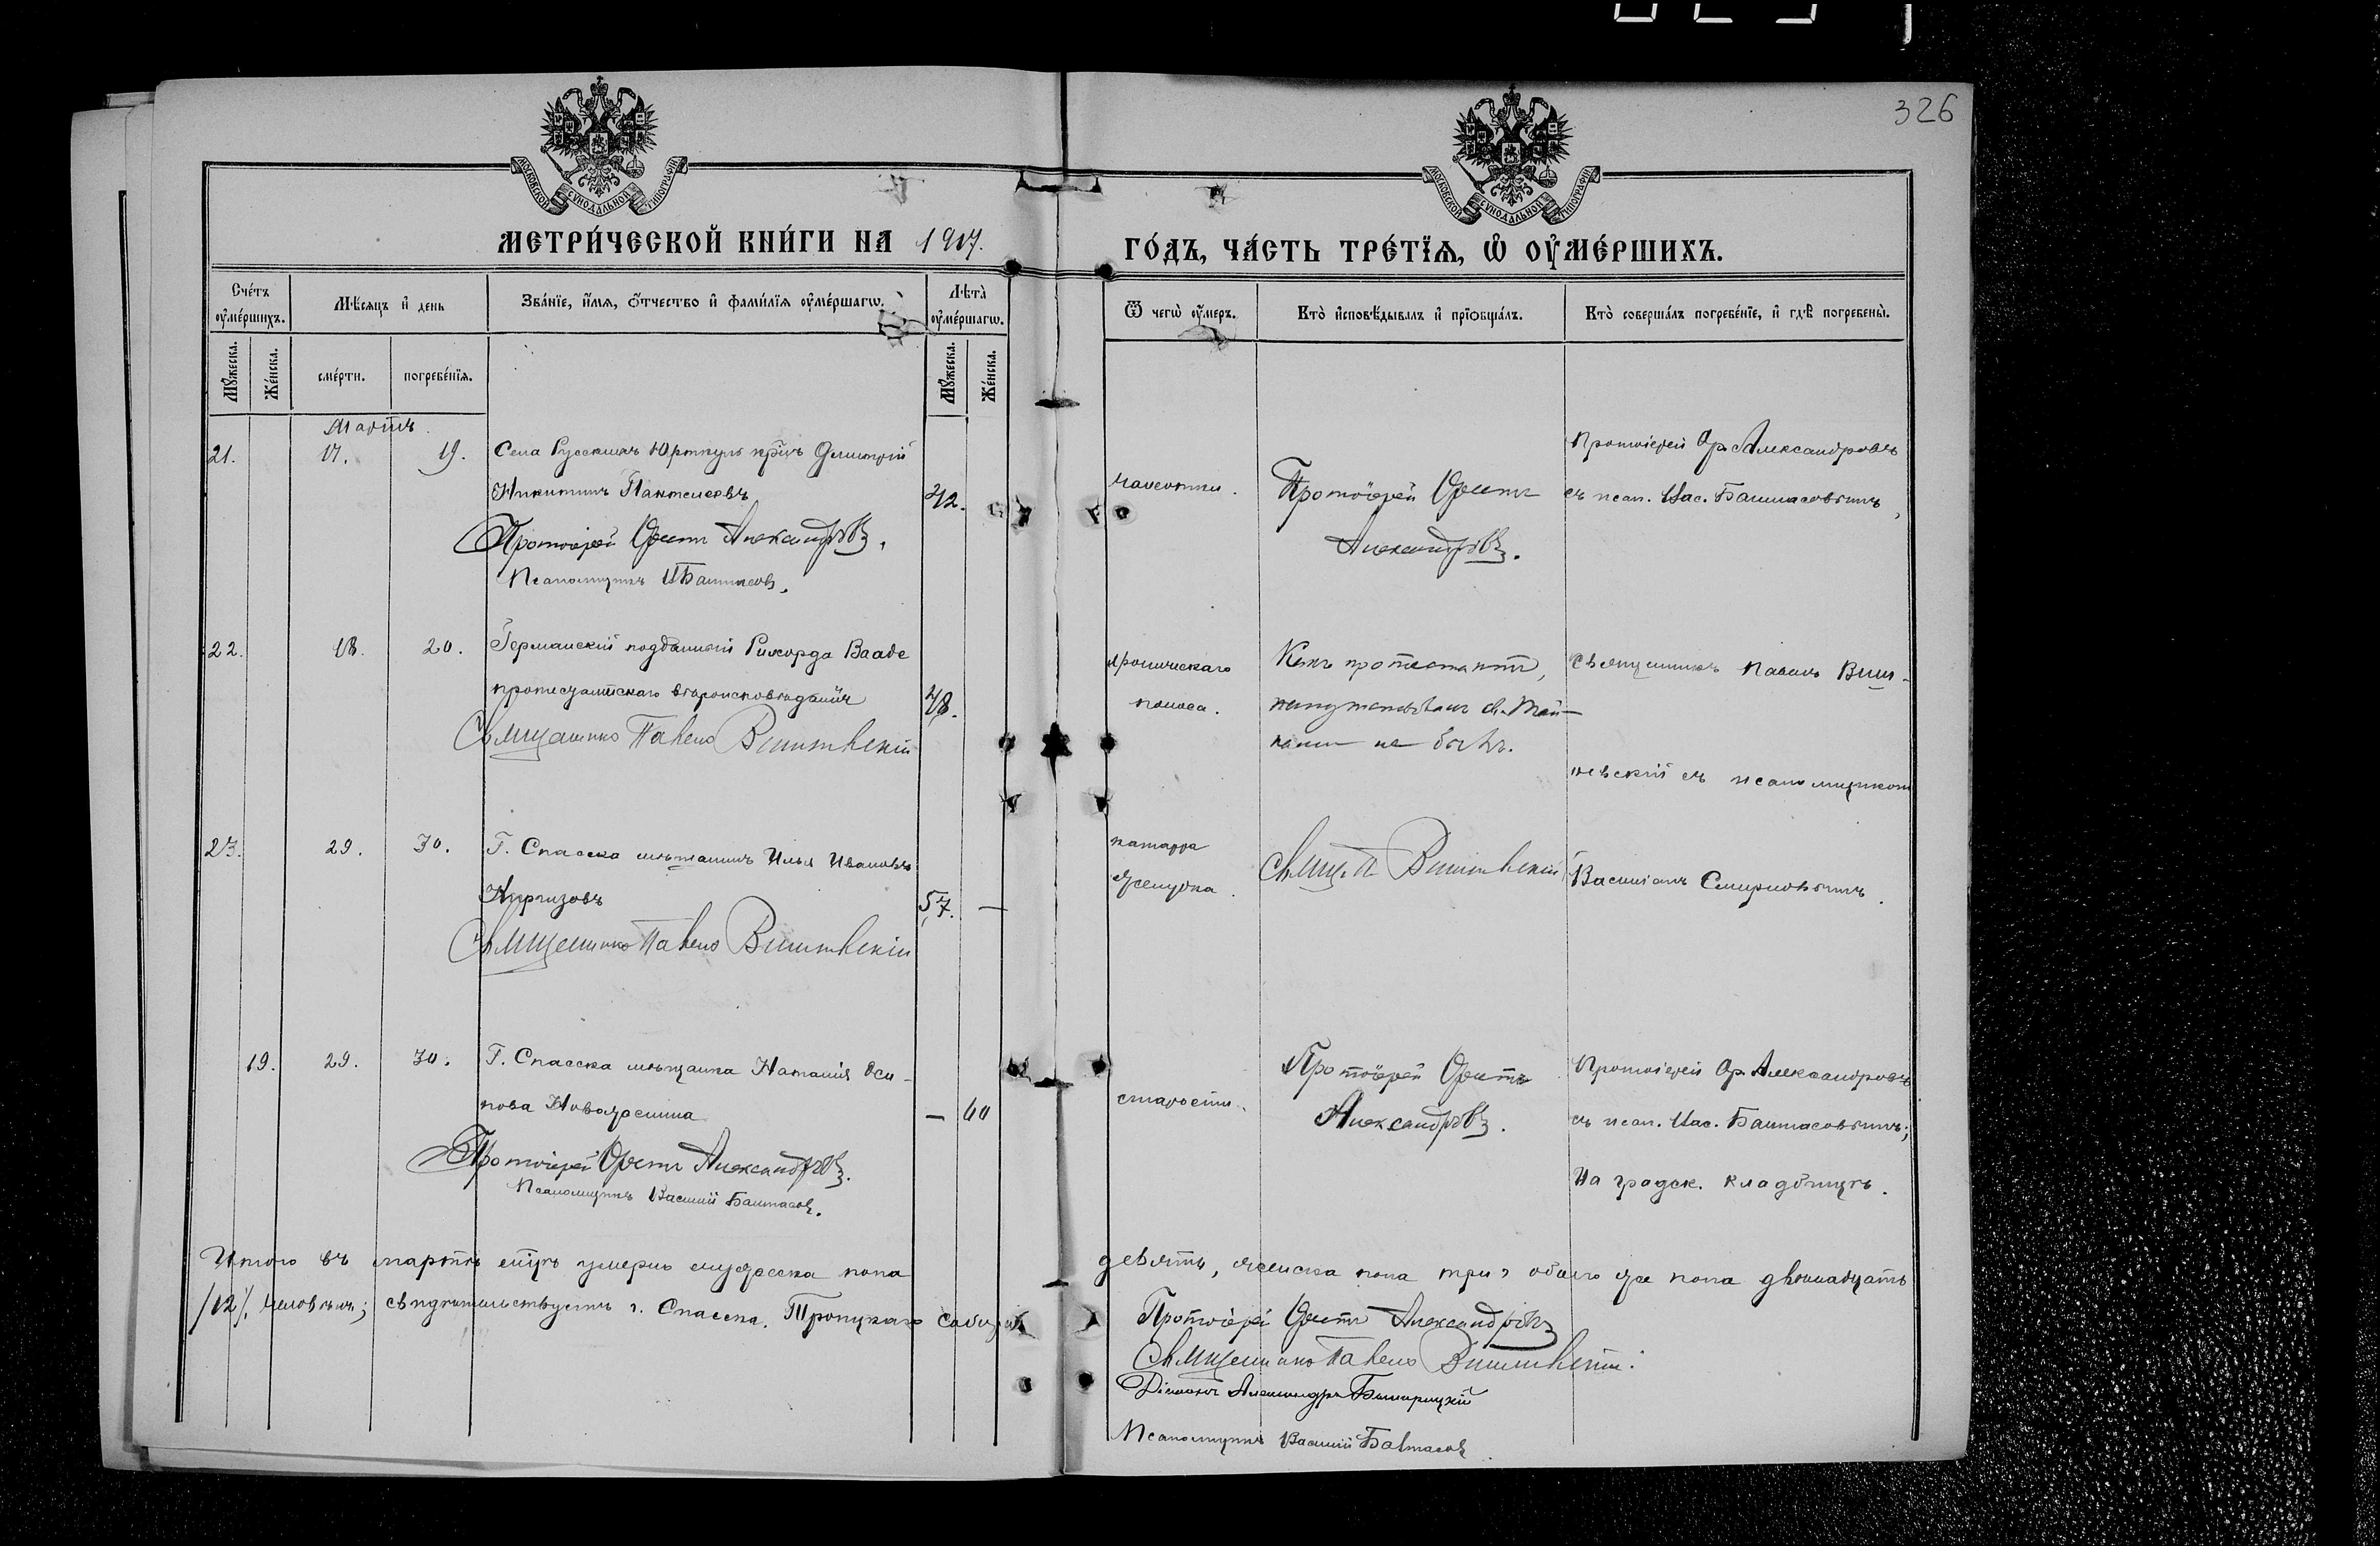 326
МОСКОВСКОЙ СУНОДАЛЬНОЙ ТИПОГРАФІИ
МОСКОВСКОЙ СУНОДАЛЬНОЙ ТИПОГРАФІИ
МЕТРИ́ЧЕСКОЙ КНИ́ГИ НА 1917.
ГО́ДЪ, ЧА́СТЬ ТРЕ́ТЇѦ, Ѡ҆ ОУ҆МЕ́РШИХЪ.
Сче́тъ оу҆ме́ршихъ.
Мѣ́сяцъ и҆ день
Зва́нїе, и҆́мя, ѻ҆́тчество и҆ фами́лїя оу҆ме́ршагѡ.
Лѣта̀ оу҆ме́ршагѡ.
Ѿ чегѡ̀ оу҆́меръ.
Кто̀ и҆сповѣ́дывалъ и҆ прїобща́лъ.
Кто̀ соверша́лъ погребе́нїе, и҆ гдѣ̀ погребены̀.
Мꙋ́жеска.
Же́нска.
сме́рти.
погребе́нїя.
Мꙋ́жеска.
Же́нска.
Мартъ.
21. 17. 19. Села Русскихъ Юрткуль кр. Димитрій
Никитинъ Пантелеевъ 42.
Протоіерей Орестъ Александровъ.
Псаломщикъ Башмасовъ.
чахотки.
Протоіерей Орестъ
Александровъ.
Протоіерей Ор. Александровъ
съ псал. Вас. Башмасовымъ,
22. 18. 20. Германскій подданный Рихордъ Вааде
протестантскаго вѣроисповѣданія 48.
Священникъ Павелъ Вишневскій
хроническаго
поноса.
Какъ протестантъ,
напутствованъ св. Тай-
нами не былъ.
Священникъ Павелъ Виш-
невскій съ псаломщикомъ
23. 29. 30. Г. Спасска мѣщанинъ Илья Ивановъ
Киргизовъ 57. —
Священникъ Павелъ Вишневскій
катарра
желудка.
Свящ. П Вишневскій
Василіемъ Смирновымъ.
19. 29. 30. Г. Спасска мѣщанка Наталія Оси-
пова Новаженина — 60
Протоіерей Орестъ Александровъ.
Псаломщикъ Василій Башмасовъ.
старости.
Протоіерей Орестъ
Александровъ.
Протоіерей Ор. Александровъ
съ псал. Вас. Башмасовымъ;
На градск. кладбищѣ.
Итого въ мартѣ мцѣ умерло мужеска пола
девять, женска пола три, обоего же пола двѣнадцать
/12/. человѣкъ; свидѣтельствуемъ г. Спасска. Троицкаго собора
Протоіерей Орестъ Александровъ
Священникъ Павелъ Вишневскій.
Діаконъ Александръ
Псаломщикъ Василій Башмасовъ